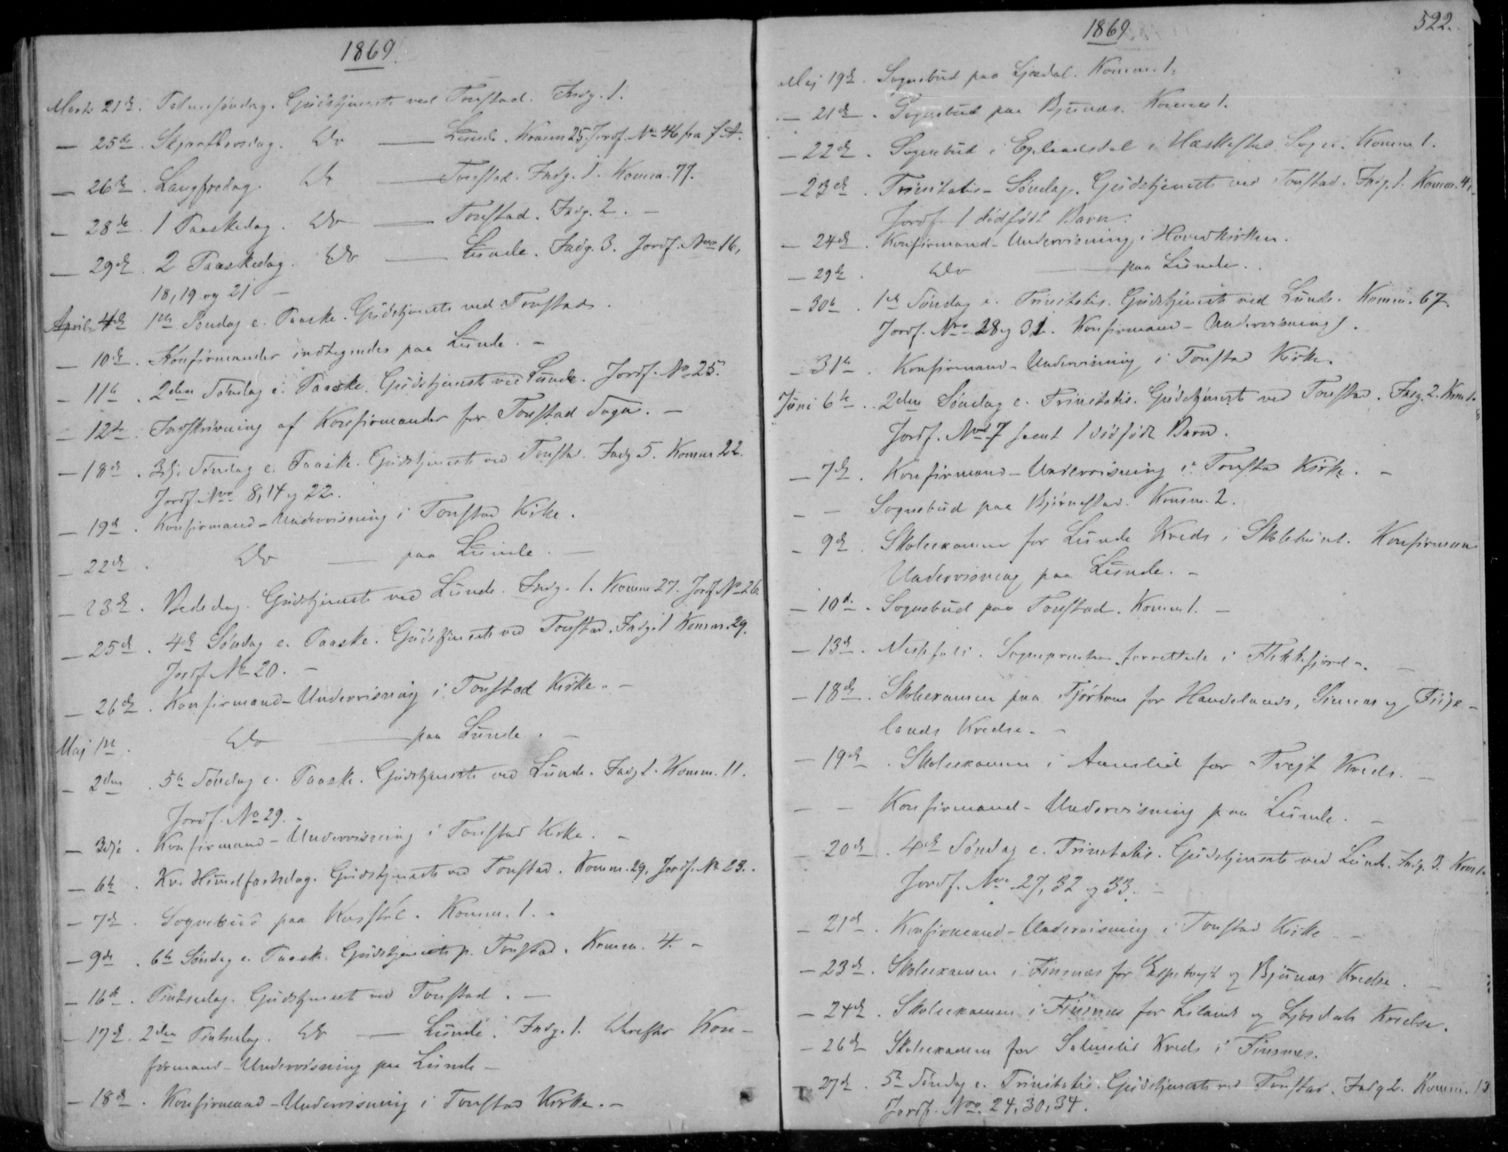 1869.
Marts 21de. Palmesøndag. Gudstjeneste ved Tonstad. Indg. 1.
— 25de. Skjærthorsdag. Do — Lunde. Komm 25. Jordf. No 46 fra f. A.
— 26de. Langfredag. Do — Tonstad. Indg. 1. Komm. 77.
— 28de. 1 Paaskedag. Do — Tonstad. Indg. 2. —
— 29de. 2 Paaskedag. Do — Lunde. Indg. 3. Jordf. Nro 16,
18, 19 og 21 —
April 4de 1ste Søndag e. Paaske. Gudstjeneste ved Tonstad.
— 10de. Konfirmander indtegnedes paa Lunde. —
— 11te. 2den Søndag e. Paaske. Gudstjeneste ved Lunde. Jordf. No 25.
— 12te. Indskrivning af Konfirmander for Tonstad Sogn. —
— 18de. 3die Søndag e. Paaske. Gudstjeneste ved Tonstad. Indg 5. Komm 22.
Jordf. Nro 8, 14 og 22.
— 19de. Konfirmand-Undervisning i Tonstad Kirke.
— 22de. Do — paa Lunde. —
— 23de. Bededag. Gudstjeneste ved Lunde. Indg. 1. Komm 27. Jordf. No 26.
— 25de. 4de Søndag e. Paaske. Gudstjeneste ved Tonstad. Indg. 1 Komm. 29.
Jordf. No 20. —
— 26de. Konfirmand-Undervisning i Tonstad Kirke. —
Maj 1ste. Do — paa Lunde. —
— 2den. 5te Søndag e. Paaske. Gudstjeneste ved Lunde. Indg 1. Komm. 11.
Jordf. No 29. —
— 3die. Konfirmand-Undervisning i Tonstad Kirke. —
— 6te. Kr. Himmelfartsdag. Gudstjeneste ved Tonstad. Komm. 29, Jordf. No 23. —
— 7de. Sognebud paa Komm. 1. —
— 9de. 6te Søndag e. Paaske. Gudstjeneste p. Tonstad. Komm. 4. —
— 16de. Pintsedag. Gudstjeneste ved Tonstad. —
— 17de. 2den Pintsedag. Do — Lunde. Indg. 1. Derefter Kon-
firmand-Undervisning paa Lunde —
— 18de. Konfirmand-Undervisning i Tonstad Kirke. —
1869
522.
Maj 19de. Sognebud paa Komm. 1.
— 21de. Sognebud paa Bjunæs. Komm 1.
— 22de. Sognebud i Eglandsdal i Hæskestad Sogn. Komm 1.
— 23de. Trinitatis-Søndag. Gudstjeneste ved Tonstad. Indg. 1. Komm. 4.
Jordf. 1 dødfødt Barn.
— 24de. Konfirmand-Undervisning i Hovedkirken.
— 29de. Do — paa Lunde.
— 30te. 1ste Søndag e. Trinitatis. Gudstjeneste ved Lunde. Komm. 67.
Jordf. Nro 28 og 31. Konfirmand-Undervisning.
— 31te. Konfirmand-Undervisning i Tonstad Kirke.
Juni 6te. 2den Søndag e. Trinitatis. Gudstjeneste ved Tonstad. Indg. 2. Komm
Jordf. No 7 samt 1 dødfødt Barn.
— 7de. Konfirmand-Undervisning i Tonstad Kirke. —
— — Sognebud paa Bjørnestad. Komm. 2.
— 9de. Skoleexamen for Lunde Kreds i Skolehuset. Konfirmand
Undervisning paa Lunde. —
— 10de. Sognebud paa Tonstad. Komm 1. —
— 13de. Messefald. Sognepresten forrettede i Flekkefjord. —
— 18de. Skoleexamen paa Fjørhom for Haudelands, Sinnæs og Filje-
lands Kredse. —
— 19de. Skoleexamen i Aamelid for Tvejt Kreds. —
— — Konfirmand-Undervisning paa Lunde. —
20de. 4de Søndag e. Trinitatis. Gudstjeneste ved Lunde. Indg. 3. Komm
Jordf. Nro 27, 32 og 33. —
— 21de. Konfirmand-Undervisning i Tonstad Kirke —
— 23de. Skoleexamen i Finsnæs for og Bjunæs Kredse. —
— 24de. Skoleexamen i Finsnæs for Lilands og Kredse.
— 26de Skoleexamen for Kreds i Finsnæs.
— 27de. 5te Søndag e. Trinitatis. Gudstjeneste ved Tonstad. Indg 2. Komm. 12
Jordf. Nro. 24, 30, 34.